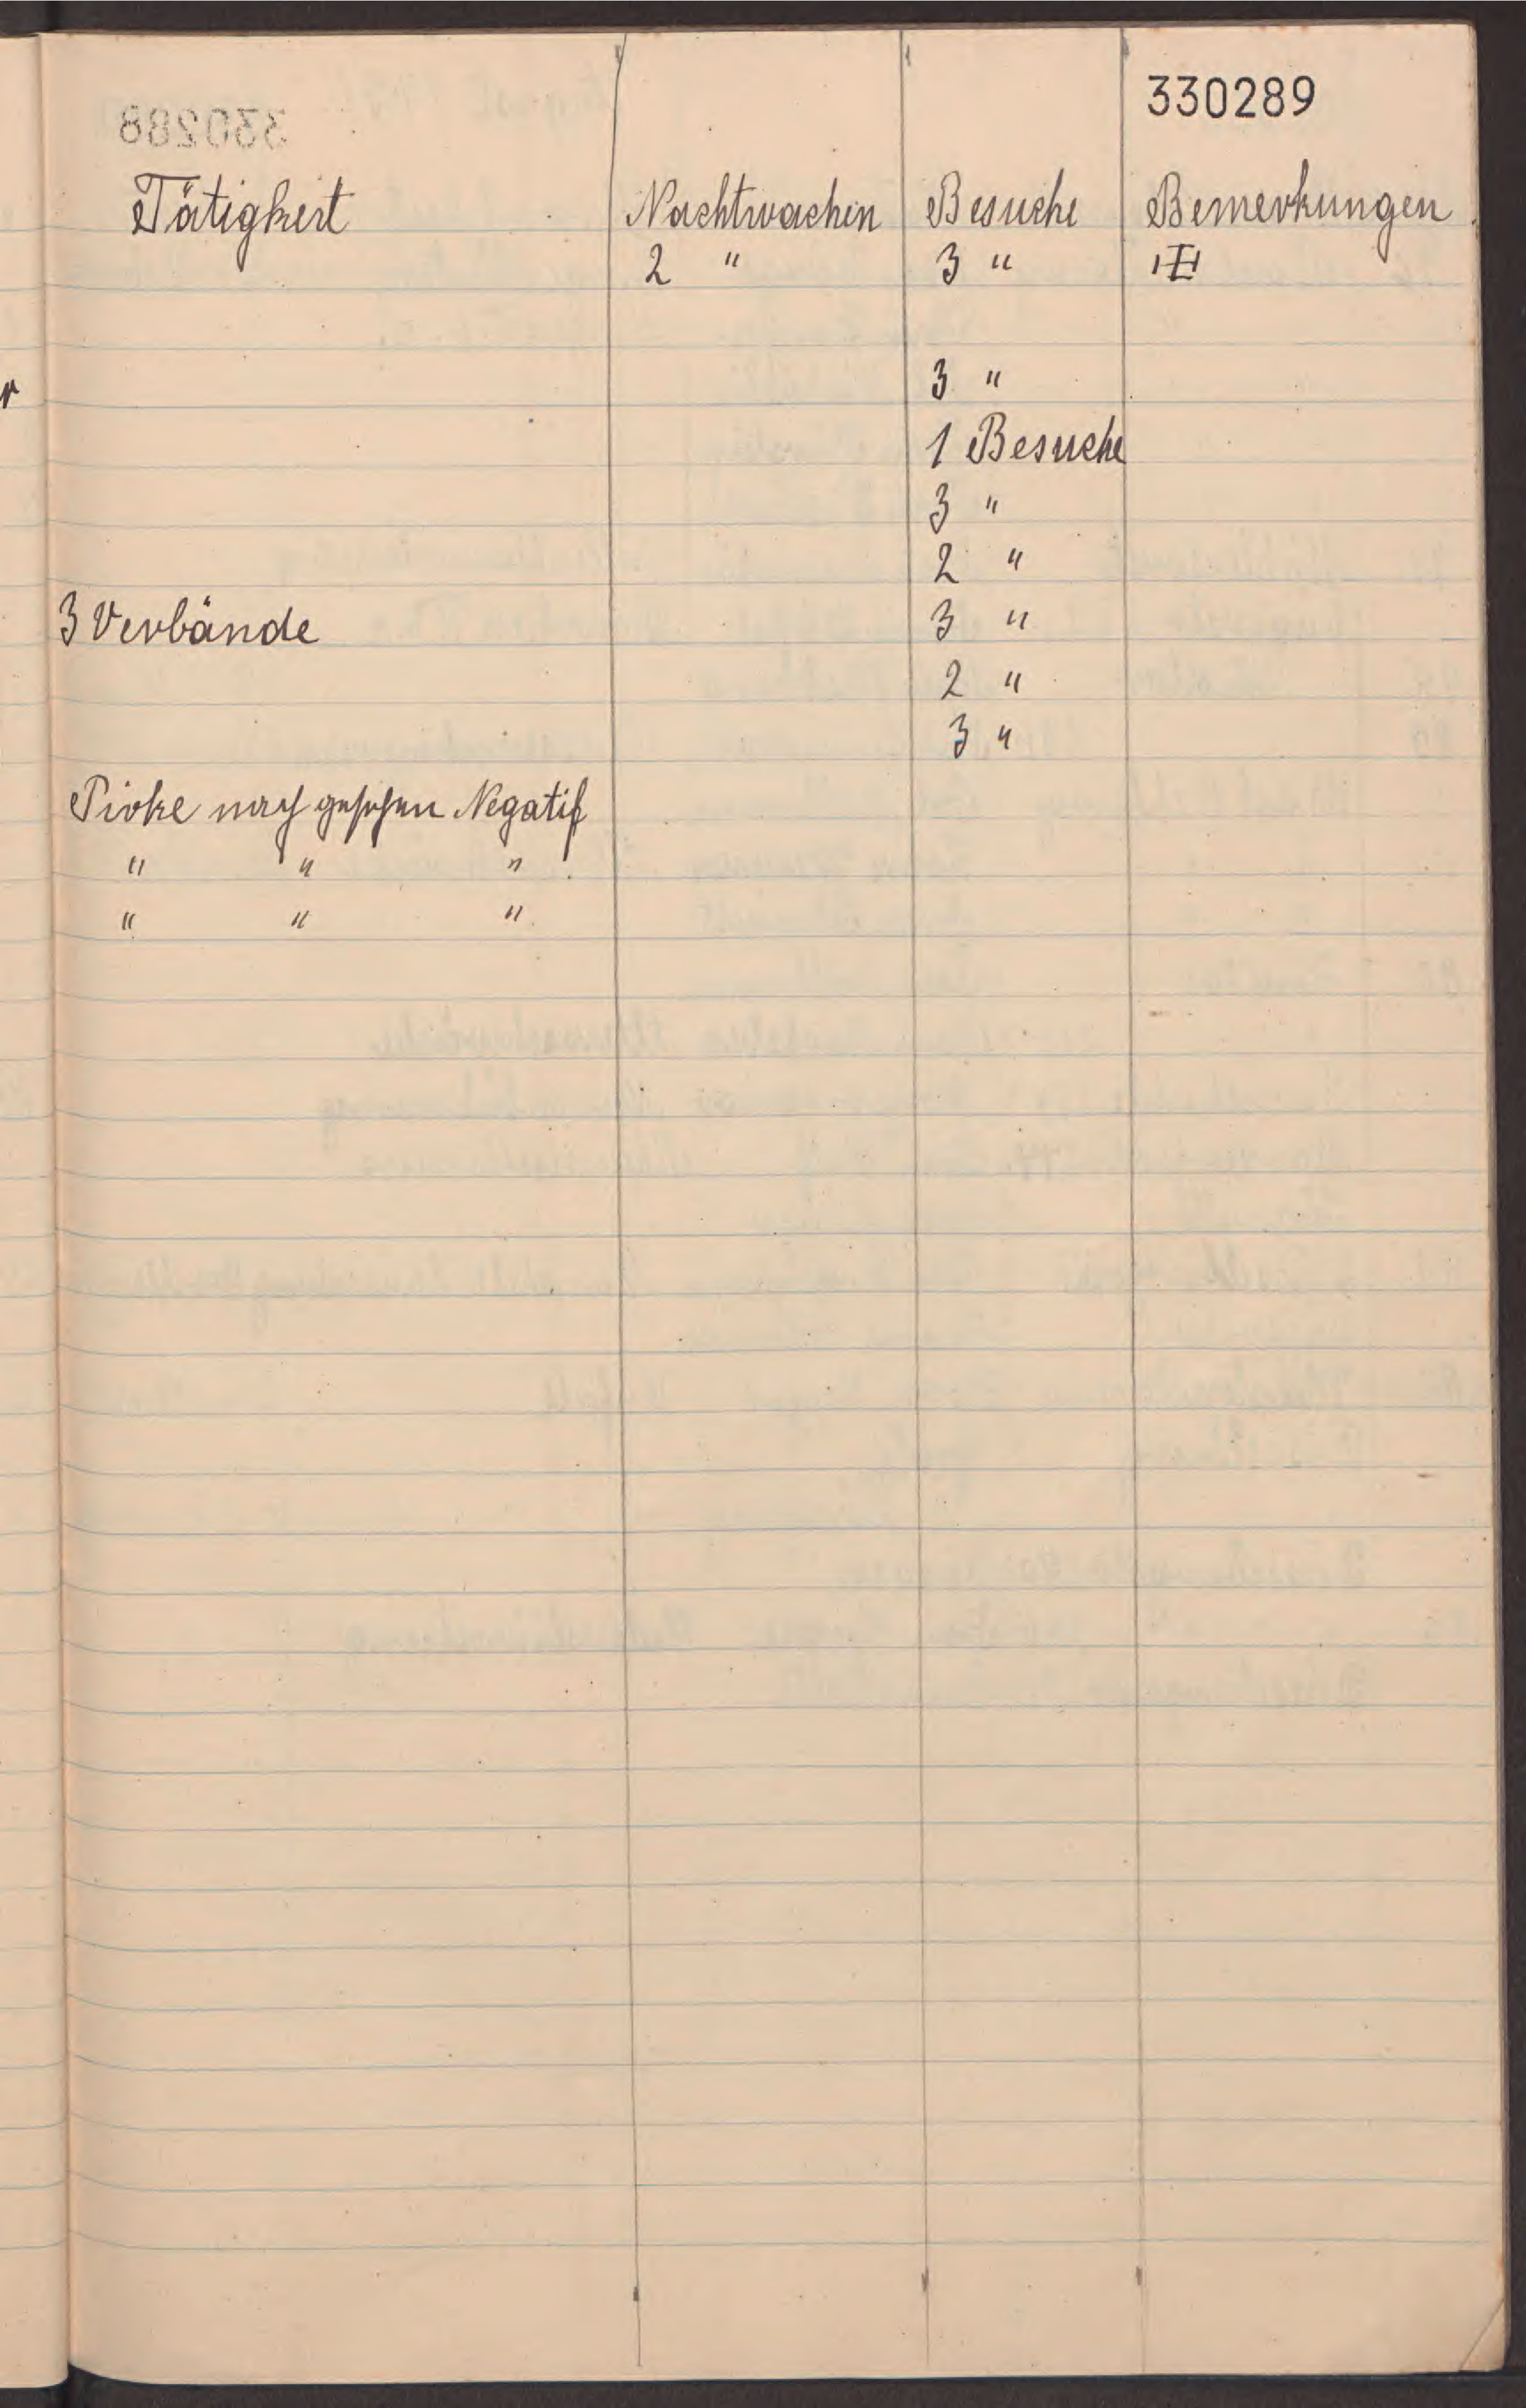 330289
Tätigkeit Nachtwachen Besuche Bemerkungen
2 " 3 " III
3 "
1 Besuche
3 "
2 "
3 Verbände 3 "
2 "
3 "
Pirke nach gesehen Negatif
" " "
" " "